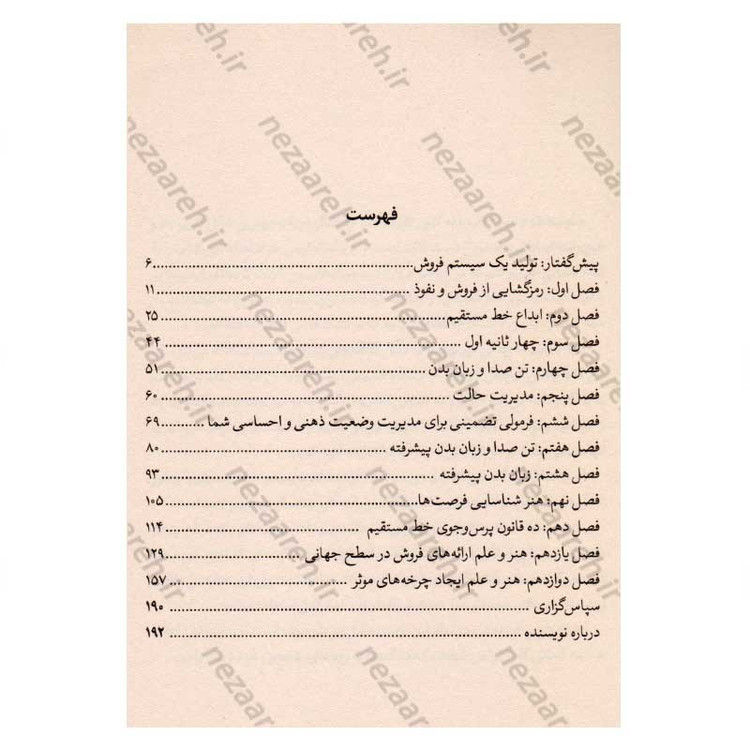 فهرست
پیش‌گفتار: تولید یک سیستم فروش..................................................۶
فصل اول: رمزگشایی از فروش و نفوذ ..................................................۱۱
فصل دوم: ابداع خط مستقیم..................................................۲۵
فصل سوم: چهار ثانیه اول ..................................................۴۴
فصل چهارم: تن صدا و زبان بدن ..................................................۵۱
فصل پنجم: مدیریت حالت ..................................................۶۰
فصل ششم: فرمولی تضمینی برای مدیریت وضعیت ذهنی و احساسی شما ..........۶۹
فصل هفتم: تن صدا و زبان بدن پیشرفته ..................................................۸۰
فصل هشتم: زبان بدن پیشرفته ..................................................۹۳
فصل نهم: هنر شناسایی فرصت‌ها..................................................۱۰۵
فصل دهم: ده قانون پرس‌وجوی خط مستقیم ..................................................۱۱۴
فصل یازدهم: هنر و علم ارائه‌های فروش در سطح جهانی ..............................۱۲۹
فصل دوازدهم: هنر و علم ایجاد چرخه‌های موثر ..............................۱۵۷
سپاس‌گزاری ..................................................۱۹۰
درباره نویسنده ..................................................۱۹۲
nezaareh.ir